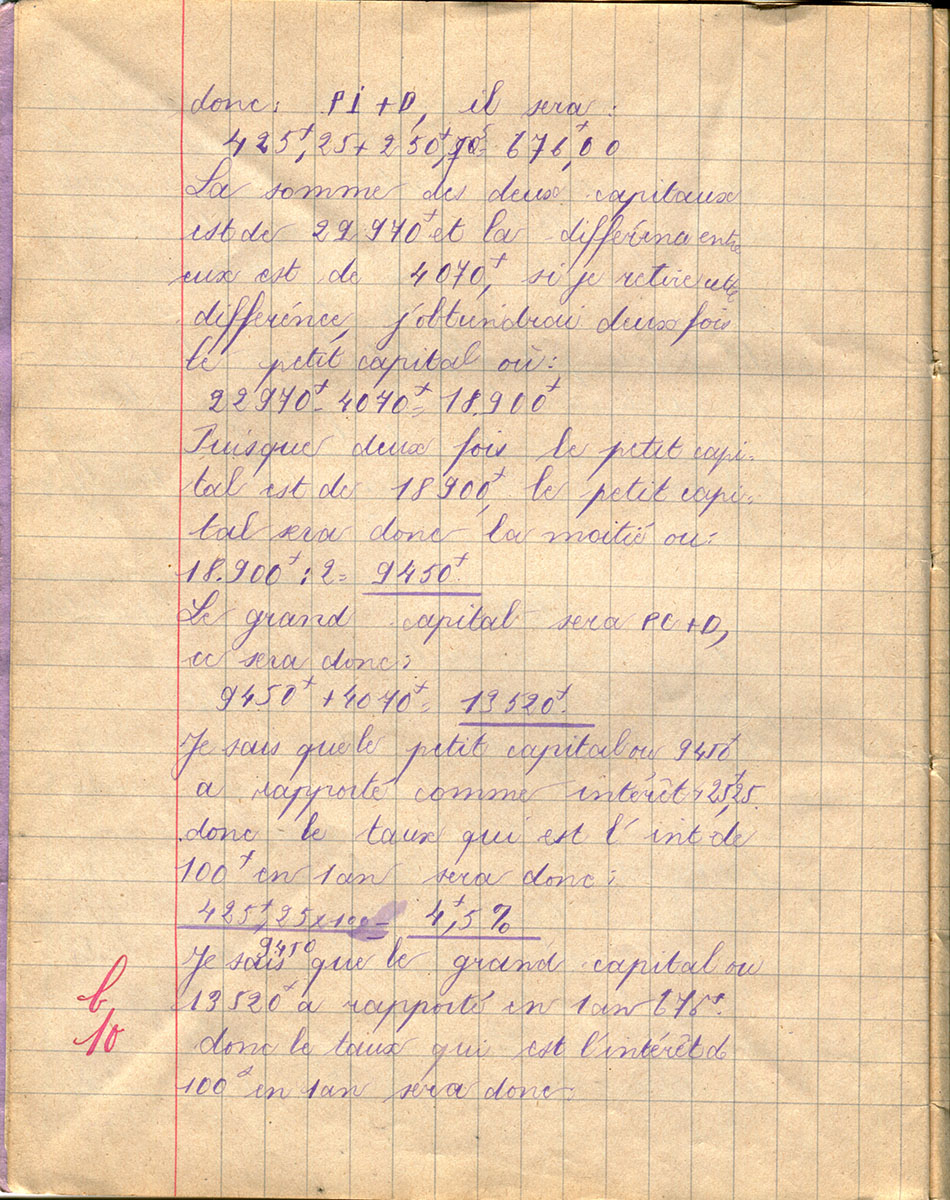 donc: PI + D, il sera:
425f,25 + 250f,75 = 676f,00
La somme des deux capitaux
est de 22970f et la différence entre
eux est de 4070f, si je retire cette
différence, j'obtiendrai deux fois
le petit capital ou:
22970f - 4070f = 18.900f
Puisque deux fois le petit capi-
tal est de 18900f, le petit capi-
tal sera donc la moitié ou:
18.900f : 2 = 9450f.
Le grand capital sera PC + D,
ce sera donc:
9450f + 4070f = 13520f.
Je sais que le petit capital ou 9450f
a rapporté comme intérêt 425f,25.
donc le taux qui est l'int de
100f en 1 an sera donc:
425f,25 x 100 = 4f,5 %
9450
Je sais que le grand capital ou
13520f a rapporté en 1 an 676f.
donc le taux qui est l'intérêt de
100f en 1 an sera donc
6
10